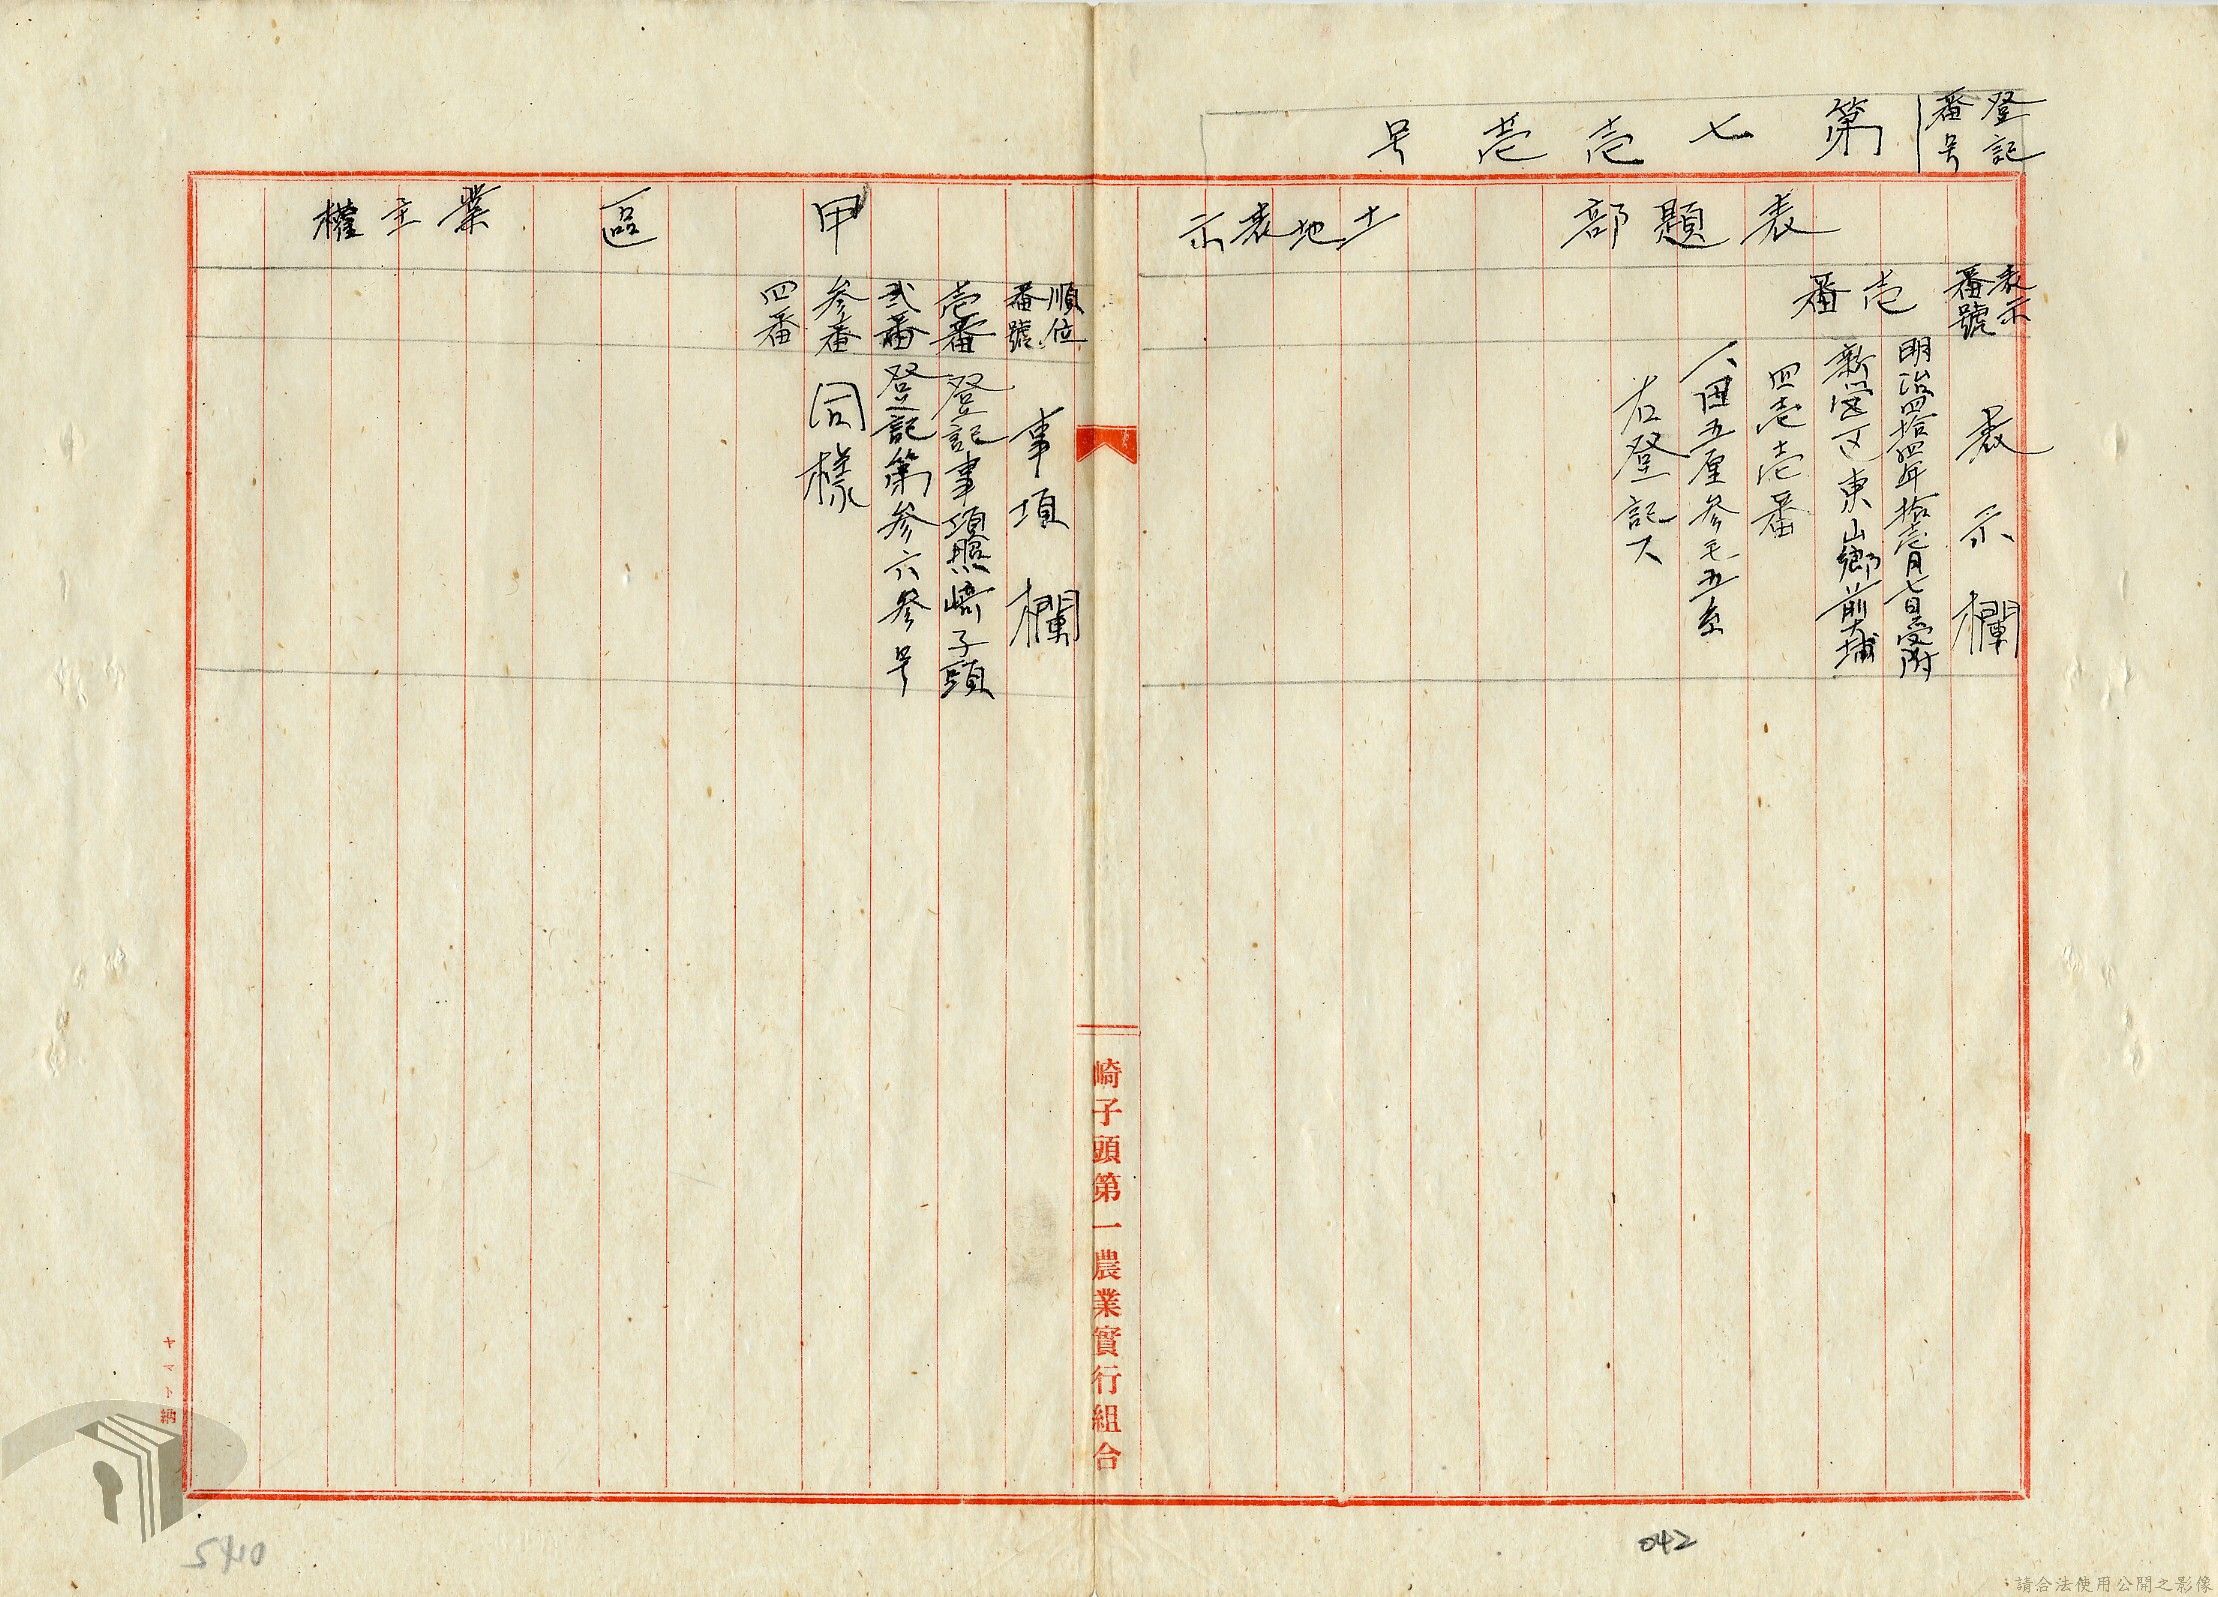 登記番号
第七壱壱号
表題部
土地表示
表示番號
表示欄
壱番
明治四拾四年拾壱月七日受附
東山鄉前大埔
四壱壱番
一、田五厘参毛五糸
右登記ス
甲區
業主權
順位番號
事項欄
壱番
登記事項照崎子頭
弐番
登記第参六参号
参番
同樣
四番
崎子頭第一農業實行組合
ヤマト納
5410
042
請合法使用公開之影像